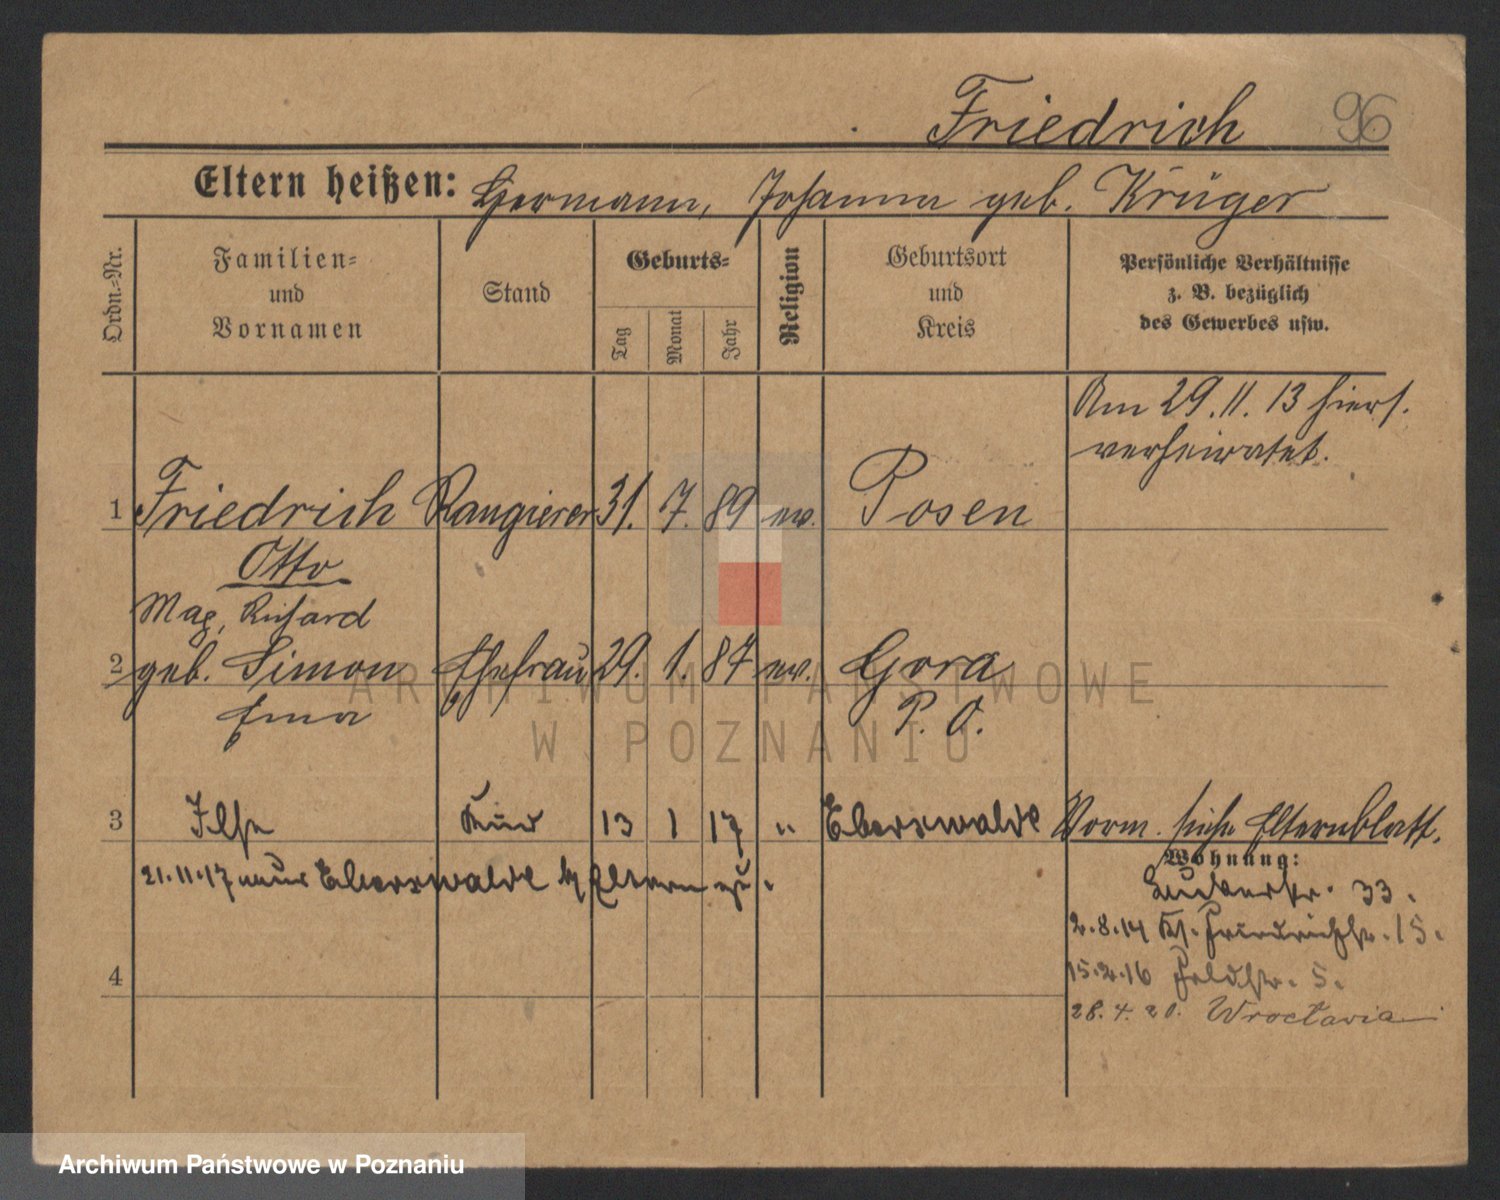 Friedrich 96
Eltern heißen: Hermann, Johanna geb. Krüger
Ordn.-Nr.
Familien-
und
Vornamen
Stand
Geburts-
Tag
Monat
Jahr
Religion
Geburtsort
und
Kreis
Persönliche Verhältnisse
z. B. bezüglich
des Gewerbes usw.
Am 29.11.13 hiers.
verheiratet.
1 Friedrich Rangierer 31. 7. 89 ev. Posen
Otto
Max, Richard
2 geb. Simon Ehefrau 29. 1. 87 ev. Gora
Ema P. O.
3 Ilse Kind 13 1 17 " Eberswalde Vorm. siehe Elternblatt.
21.11.17 Eberswalde Eltern zu.
Wohnung:
33.
2.8.14 Kl. Friedrichstr. 15.
15.2.16 Feldstr. 5.
4
28.4.20. Wrocławia
ARCHIWUM PAŃSTWOWE
W POZNANIU
Archiwum Państwowe w Poznaniu